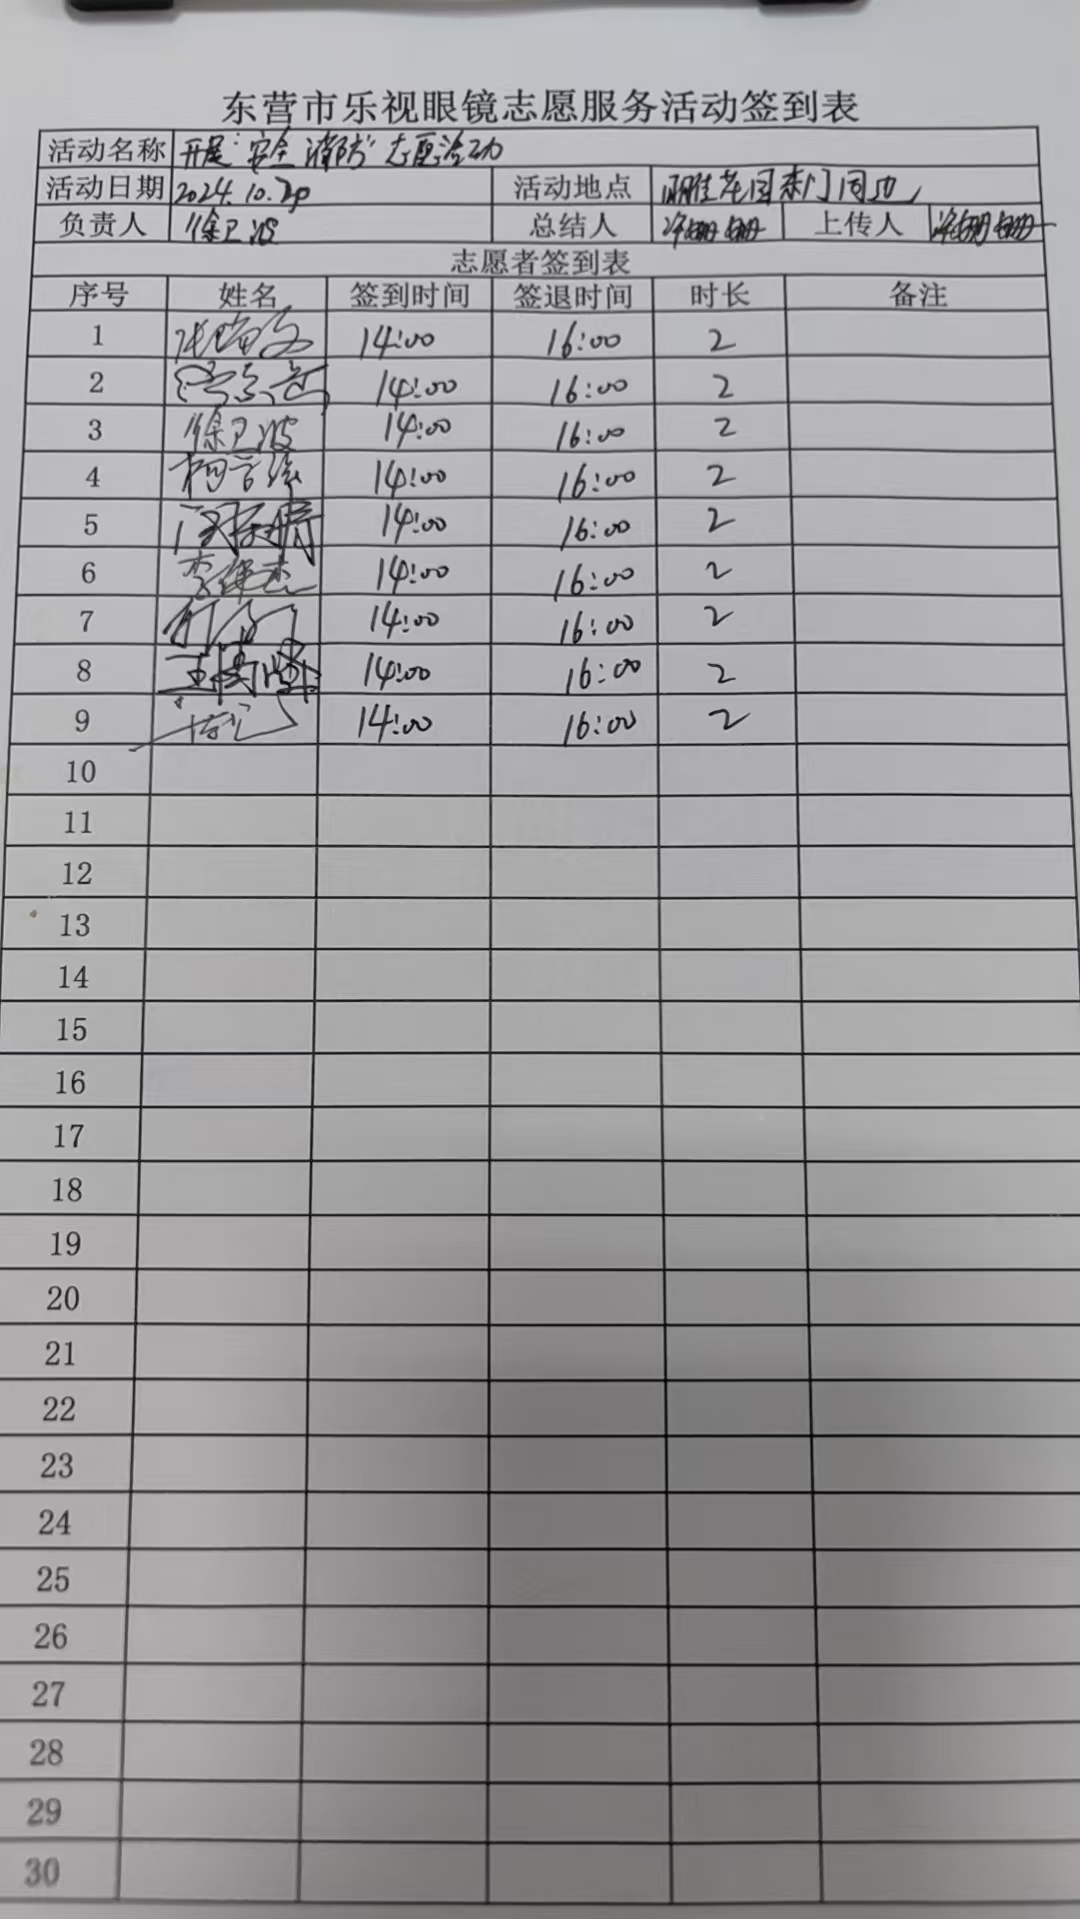 东营市乐视眼镜志愿服务活动签到表
活动名称 开展“安全消防”志愿活动
活动日期 2024.10.20 活动地点 花园东门周边
负责人 徐卫波 总结人 许珊珊 上传人 许珊珊
志愿者签到表
序号 姓名 签到时间 签退时间 时长 备注
1 14:00 16:00 2
2 14:00 16:00 2
3 徐卫波 14:00 16:00 2
4 14:00 16:00 2
5 14:00 16:00 2
6 李伟杰 14:00 16:00 2
7 14:00 16:00 2
8 14:00 16:00 2
9 14:00 16:00 2
10
11
12
13
14
15
16
17
18
19
20
21
22
23
24
25
26
27
28
29
30